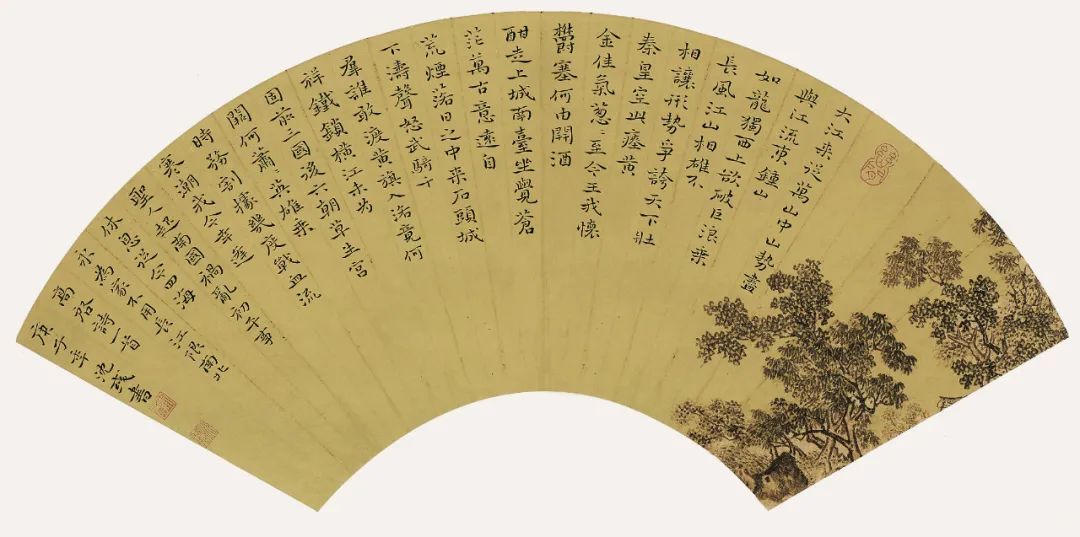 大江来從萬山中山勢盡
與江流東鍾山
如龍獨西上欲破巨浪乘
長風江山相雄不
相讓形勢爭誇天下壯
秦皇空此瘞黄
金佳氣葱〻至今王我懷
鬱塞何由開酒
酣走上城南臺坐覺蒼
茫萬古意遠自
荒煙落日之中来石頭城
下濤聲怒武騎千
羣誰敢渡黄旗入洛竟何
祥鐵鎖横江未為
固前三國後六朝草生宮
闕何蕭〻英雄乘
時務割據幾度戰血流
寒潮我今幸逢
聖人起南國禍亂初平事
休息從今四海
永為家不用長江限南北
高啓詩一首
庚午年沈書